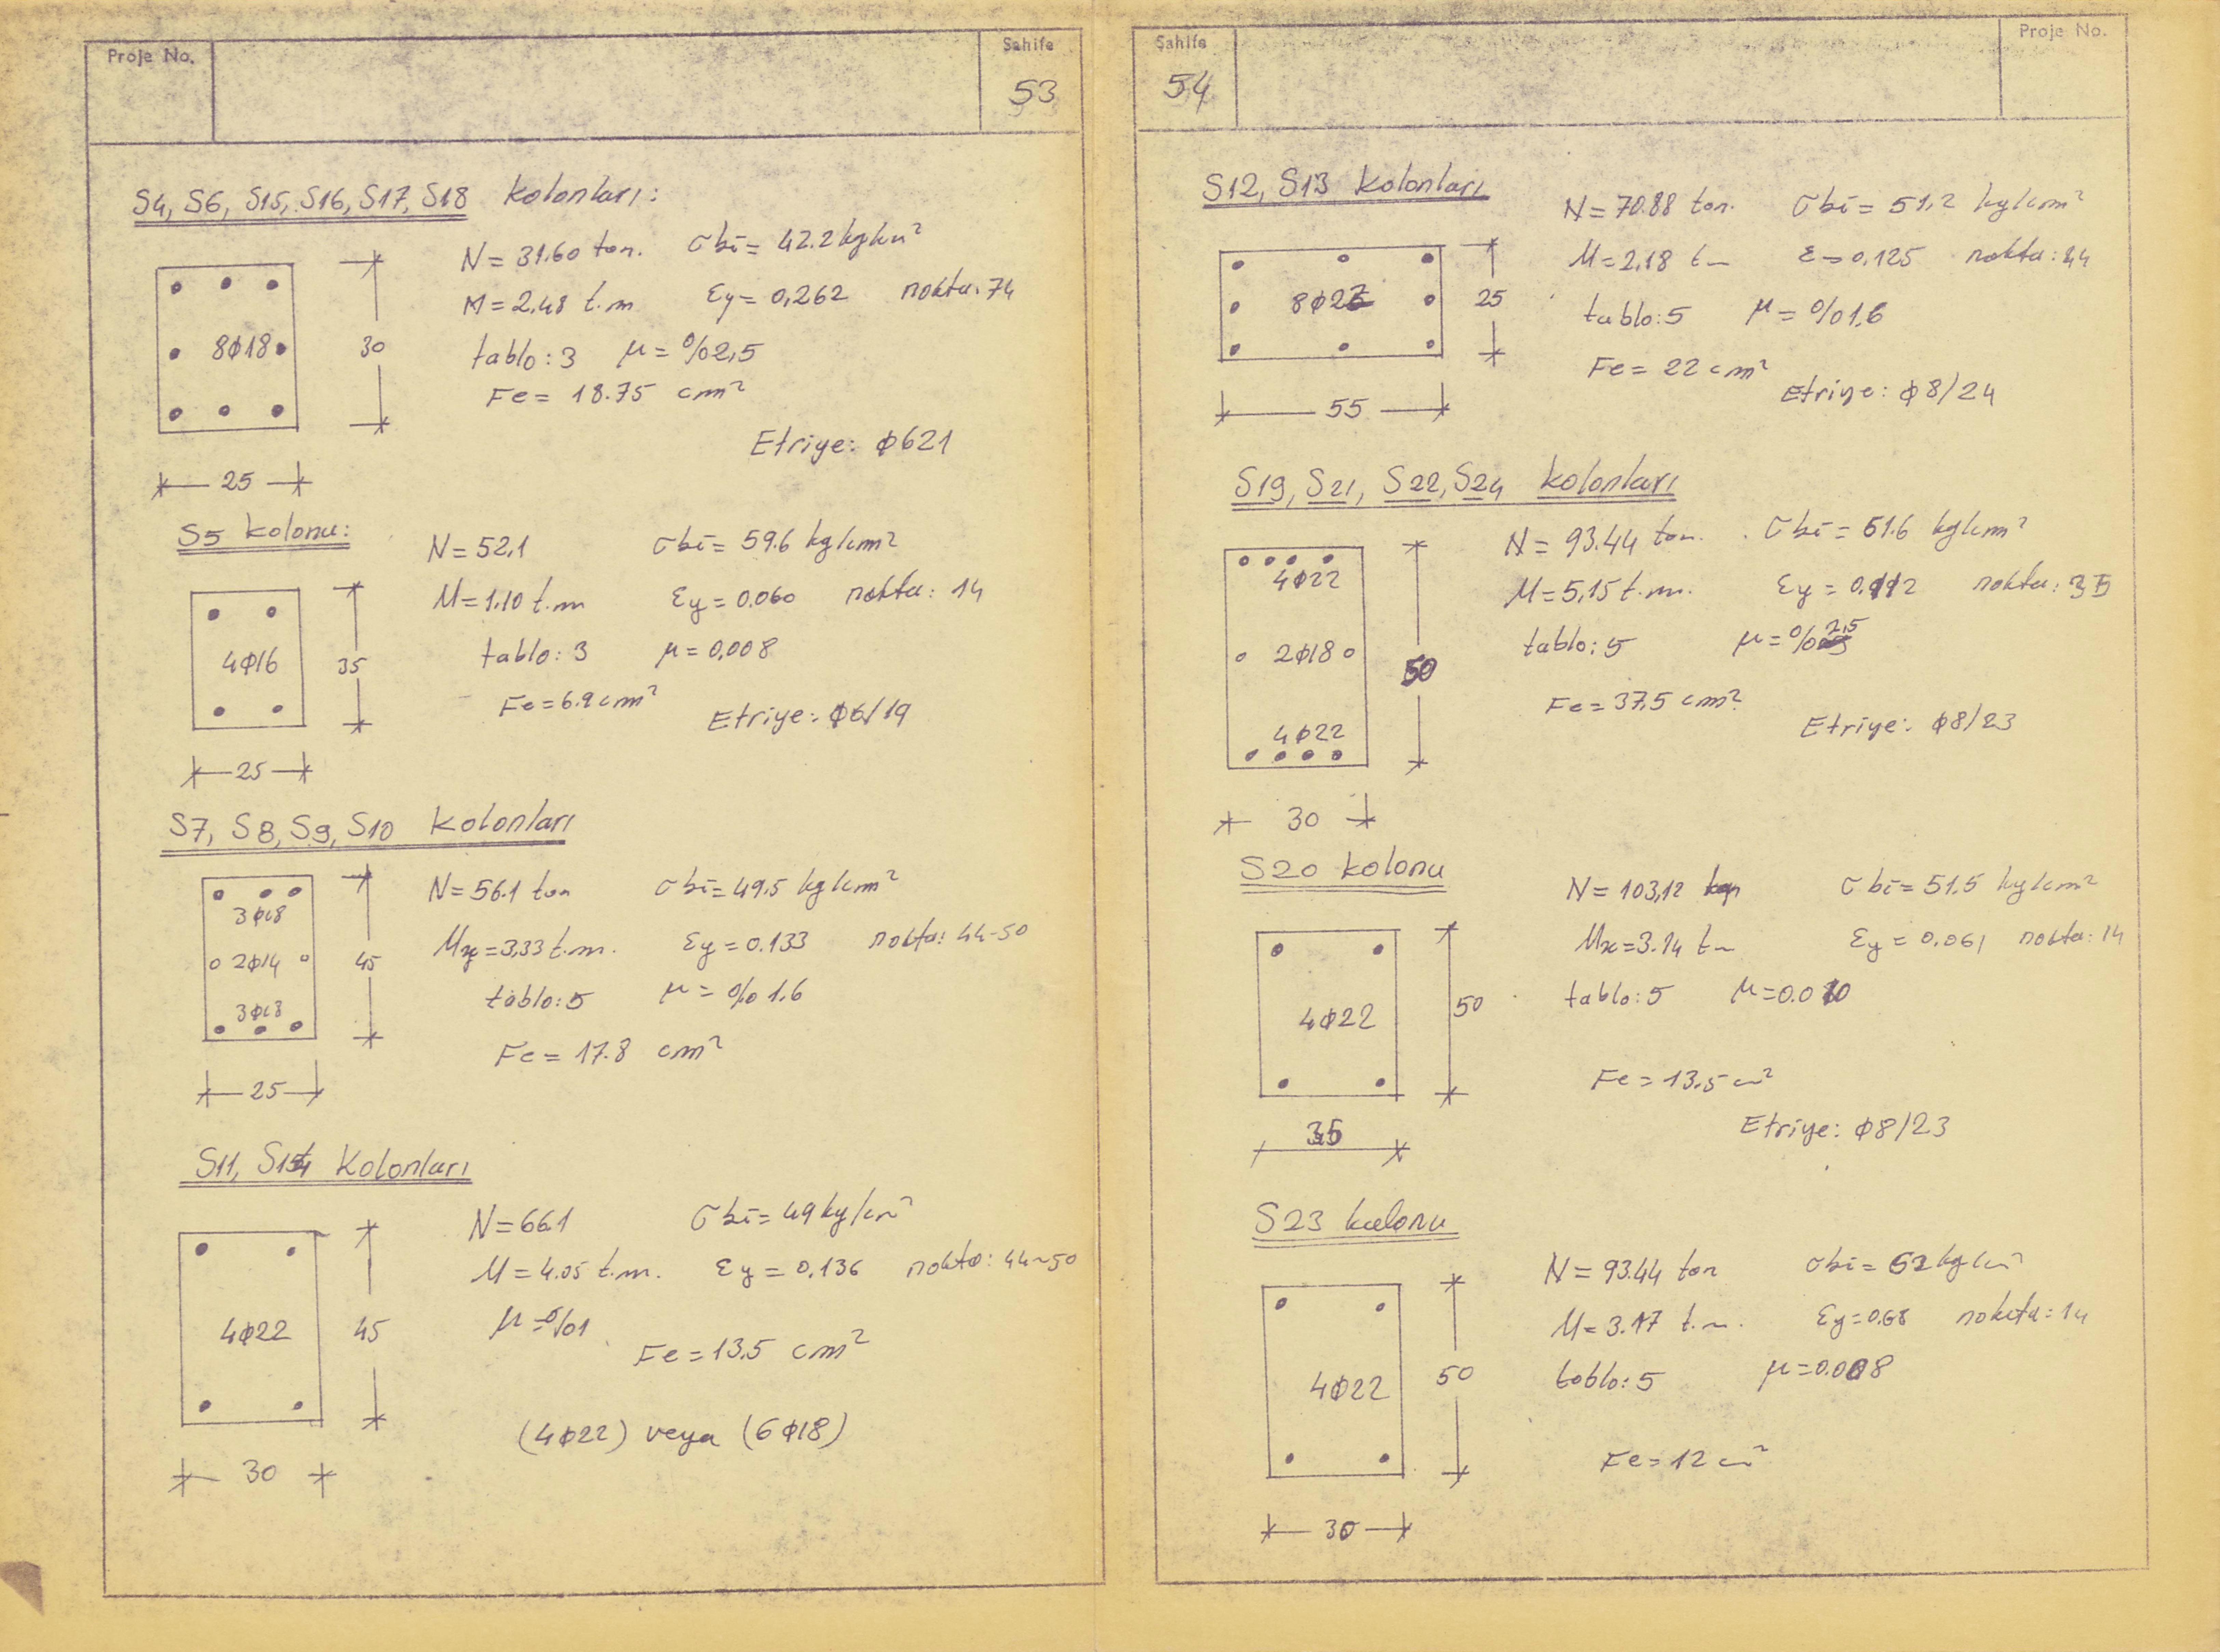 Proje No.
Sahife
53
S4, S6, S15, S16, S17, S18 kolonları:
N= 31.60 ton. σbi= 42.2 kg/cm²
M= 2,48 t.m εy= 0,262 nokta: 74
8Φ18
30
tablo: 3 μ= %2,5
Fe= 18.75 cm²
Etriye: Φ621
25
S5 kolonu:
N= 52,1 σbi= 59.6 kg/cm²
M=1.10 t.m εy= 0.060 nokta: 14
4Φ16
35
tablo: 3 μ= 0,008
Fe=6.9 cm²
Etriye: Φ6/19
25
S7, S8, S9, S10 kolonları
N= 56.1 ton σbi= 49,5 kg/cm²
3Φ18
My=3,33 t.m. εy= 0.133 nokta: 44-50
2Φ14
45
tablo: 5 μ= %1.6
3Φ18
Fe= 17.8 cm²
25
S11, S14 Kolonları
N=66.1 σbi= 49 kg/cm²
M= 4.05 t.m. εy= 0,136 nokta: 44~50
4Φ22
45
μ=%1
Fe=13.5 cm²
(4Φ22) veya (6Φ18)
30
Sahife
54
Proje No.
S12, S13 kolonları
N= 70.88 ton. σbi= 51,2 kg/cm²
M=2,18 tm ε=0,125 nokta: 44
8Φ22
25
tablo: 5 μ= %1,6
Fe= 22 cm²
Etriye: Φ8/24
55
S19, S21, S22, S24 kolonları
N= 93.44 ton. σbi= 61.6 kg/cm²
4Φ22
M=5,15 t.m. εy= 0,112 nokta: 35
2Φ18
50
tablo: 5 μ=%2,5
Fe= 37,5 cm²
4Φ22
Etriye: Φ8/23
30
S20 kolonu
N= 103,12 σbi= 51.5 kg/cm²
Mx=3.14 tm εy= 0,061 nokta: 14
4Φ22
50
tablo: 5 μ=0.010
Fe= 13,5 cm²
Etriye: Φ8/23
35
S23 kolonu
N= 93.44 ton σbi= 62 kg/cm²
M= 3.17 t.m. εy=0.68 nokta: 14
4Φ22
50
tablo: 5 μ=0.008
Fe=12 cm²
30